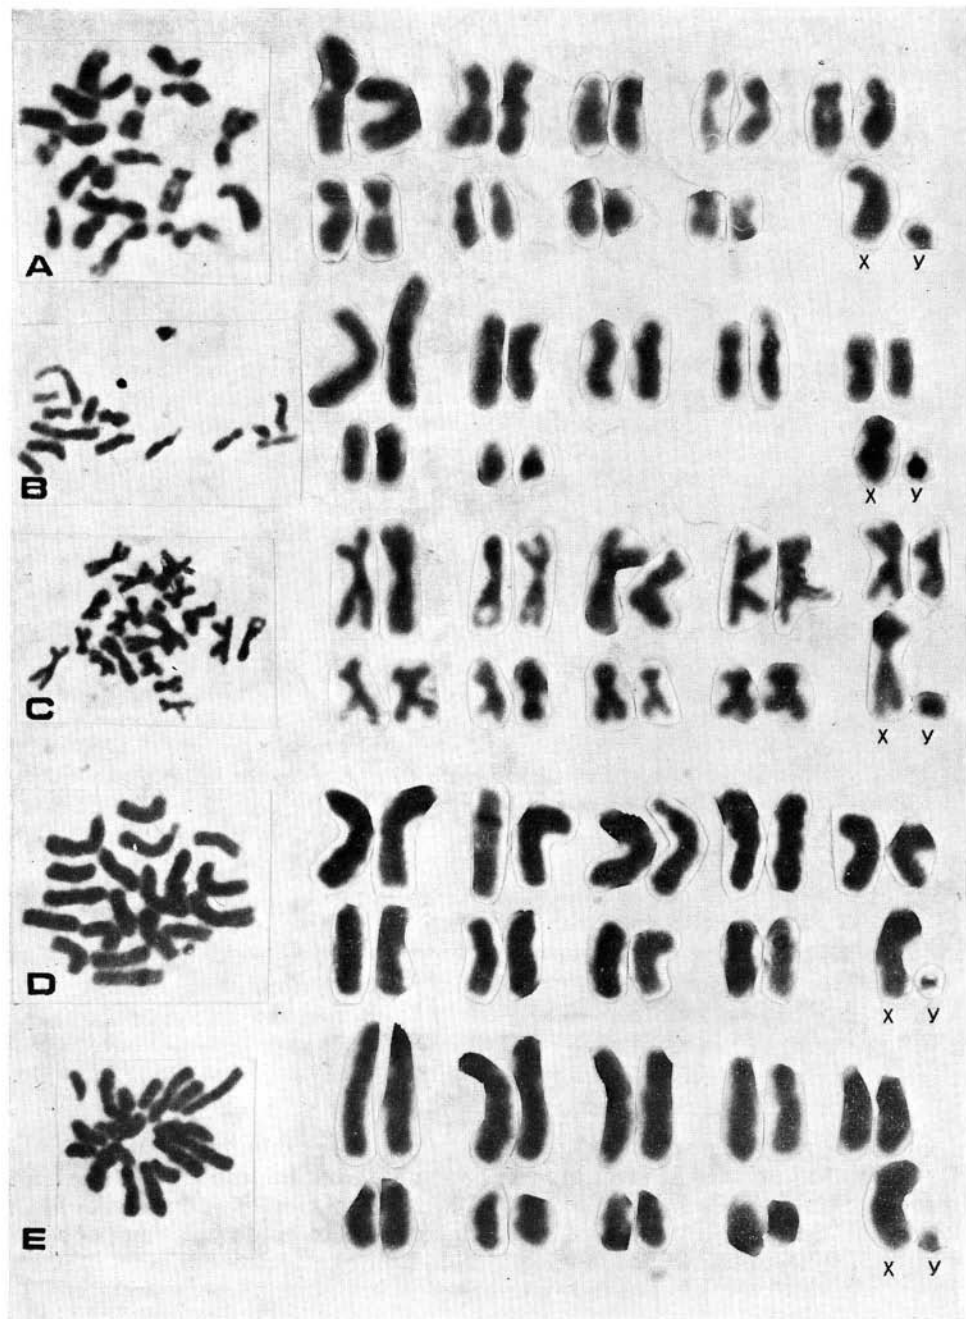 A
X y
B
X y
C
X y
D
X y
E
X y